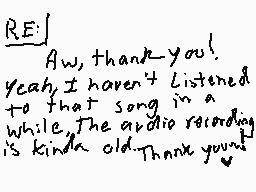 RE:
Aw, thank you!
Yeah, I haven't Listened
to that song in a
while, The audio recording
is kinda old. Thank you